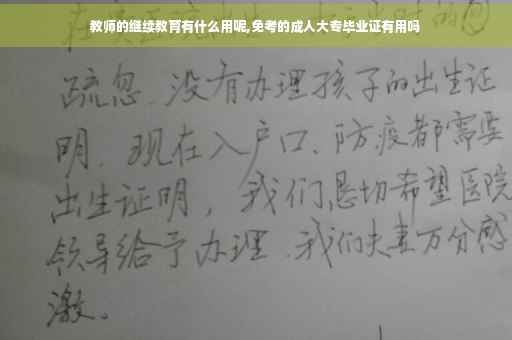 教师的继续教育有什么用呢,免考的成人大专毕业证有用吗
疏忽、没有办理孩子的出生证
明、现在入户口、防疫都需要
出生证明，我们恳切希望医院
领导给予办理、我们夫妻万分感
激。